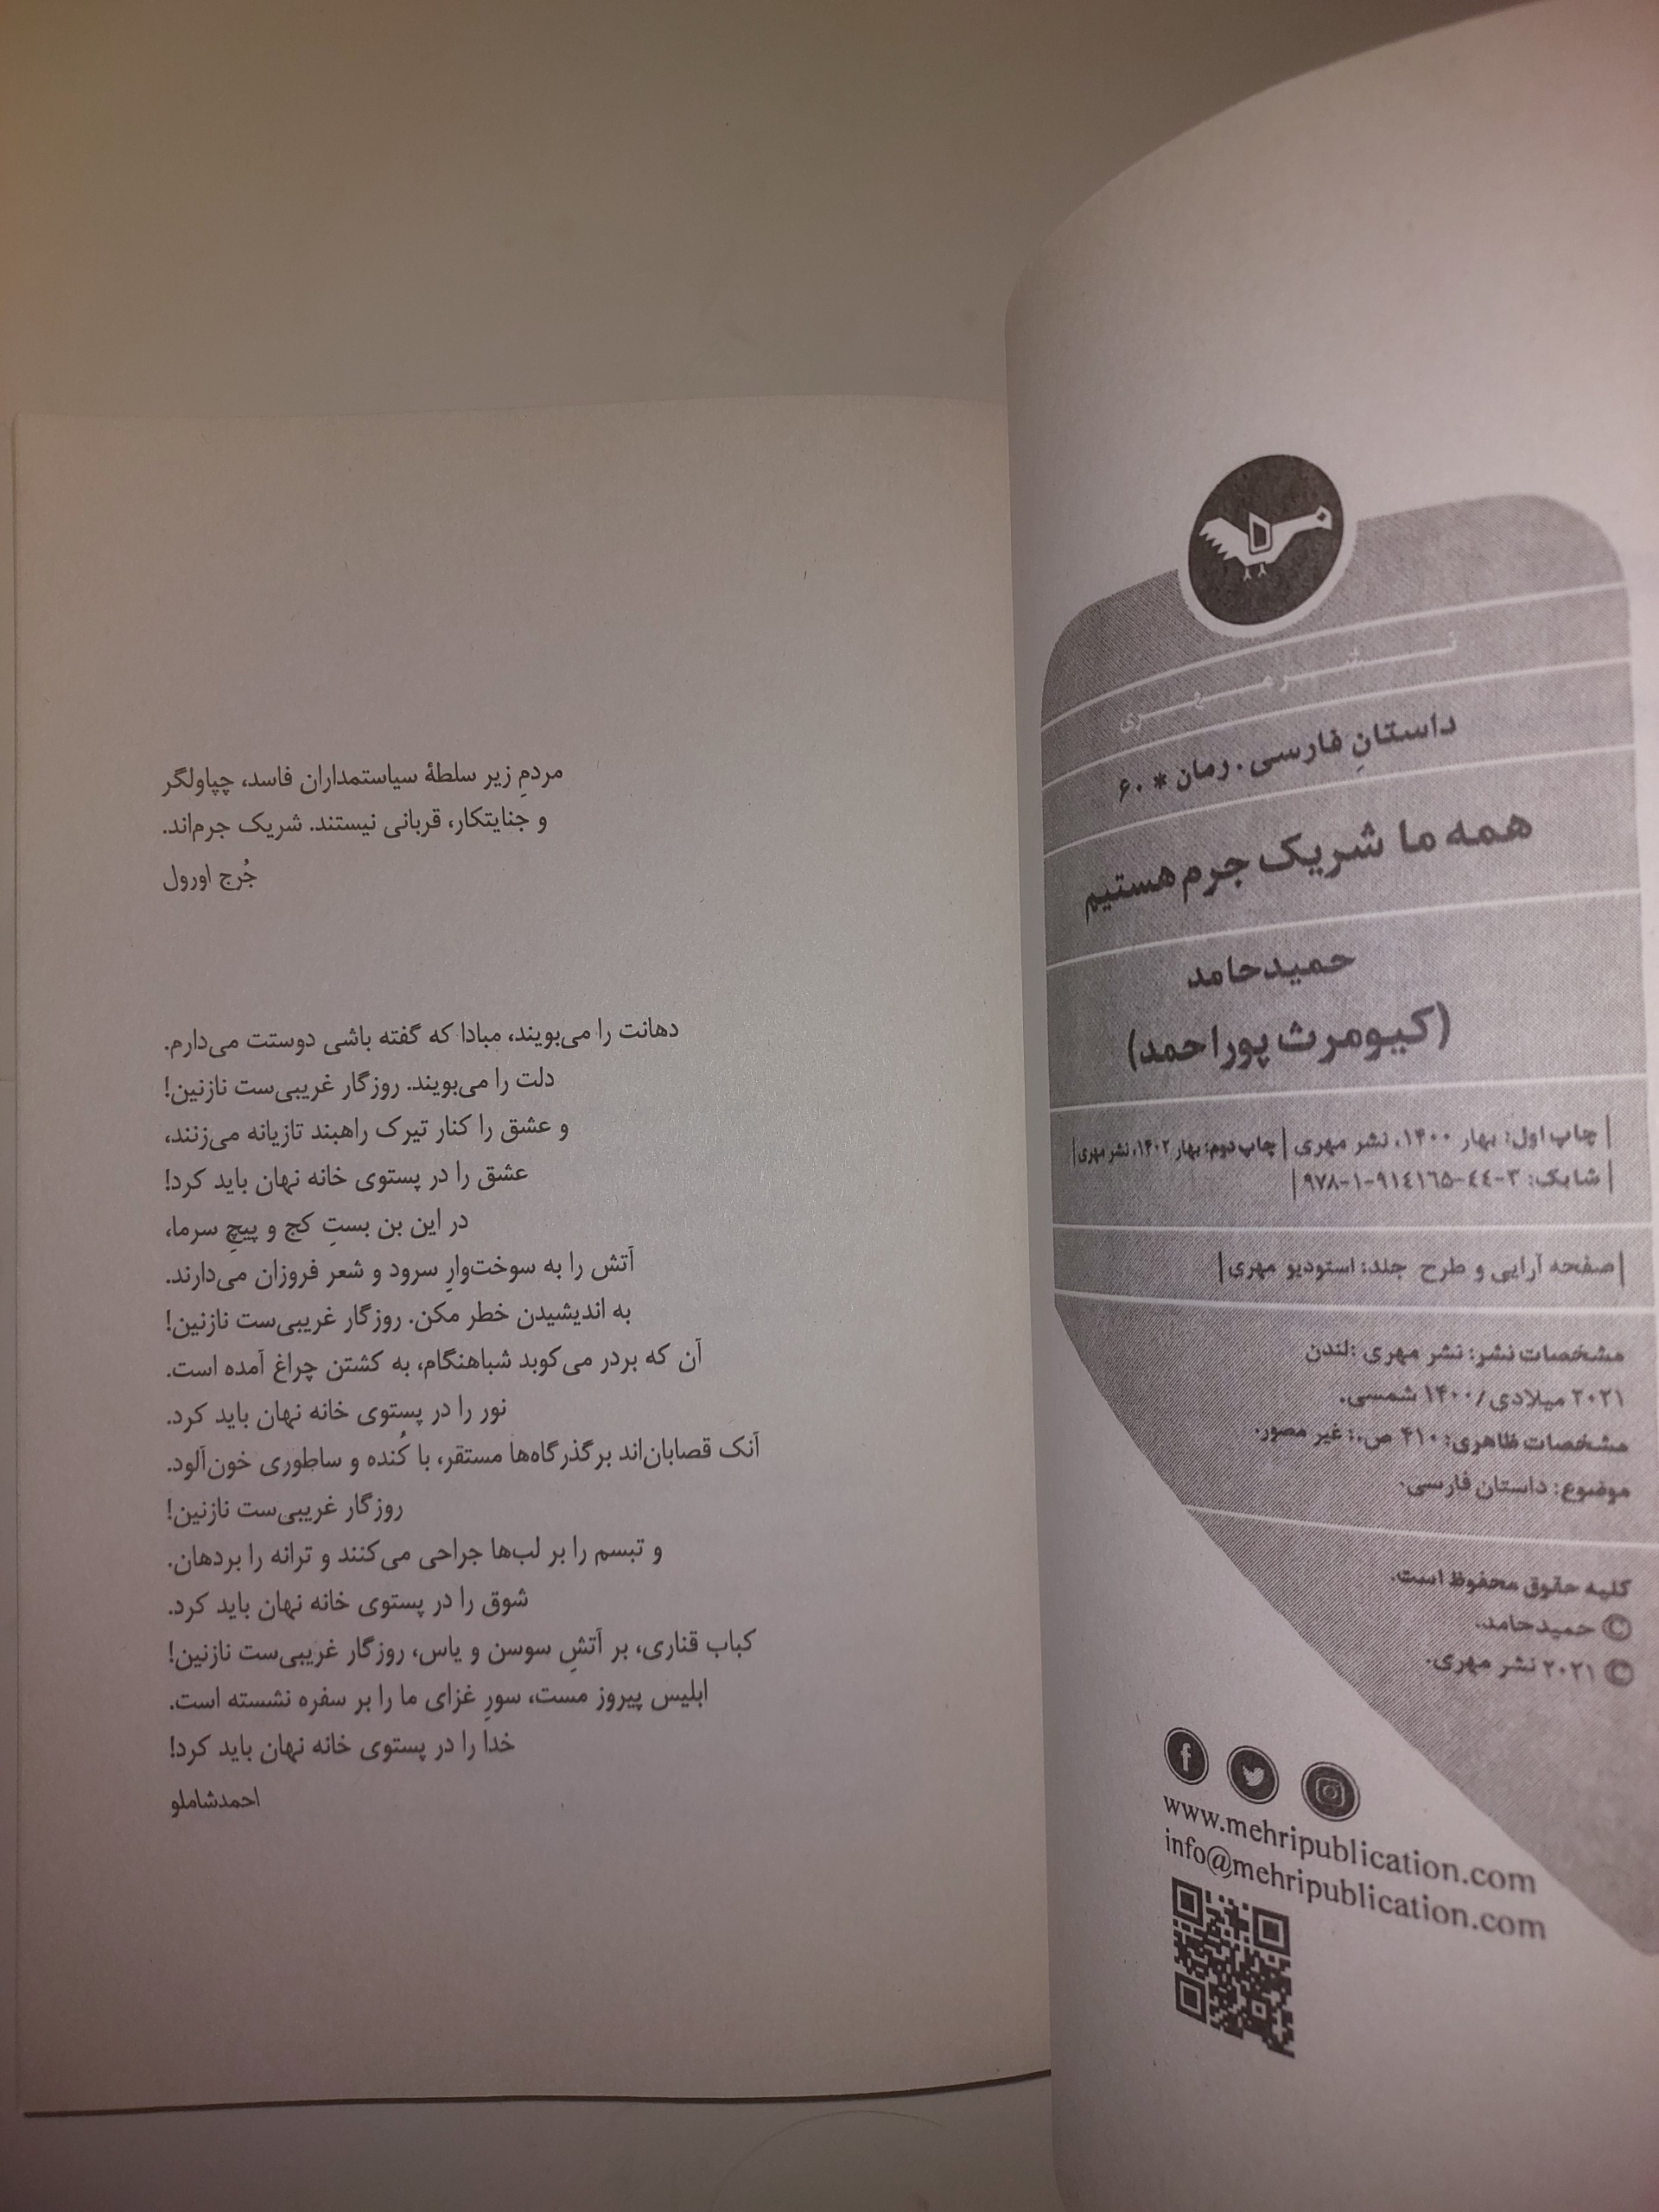 نشر مهری
داستانِ فارسی. رمان * ۶۰
همه ما شریک جرم هستیم
حمیدحامد
(کیومرث پوراحمد)
| چاپ اول: بهار ۱۴۰۰، نشر مهری | چاپ دوم: بهار ۱۴۰۲، نشر مهری |
| شابک: ۳-٤٤-٩١٤١٦٥-١-٩٧٨ |
| صفحه آرایی و طرح جلد: استودیو مهری |
مشخصات نشر: نشر مهری :لندن
۲۰۲۱ میلادی/۱۴۰۰ شمسی.
مشخصات ظاهری: ۴۱۰ ص.: غیر مصور.
موضوع: داستان فارسی.
کلیه حقوق محفوظ است.
© حمیدحامد.
© ۲۰۲۱ نشر مهری.
www.mehripublication.com
info@mehripublication.com
مردمِ زیر سلطهٔ سیاستمداران فاسد، چپاولگر
و جنایتکار، قربانی نیستند. شریک جرم‌اند.
جُرج اورول
دهانت را می‌بویند، مبادا که گفته باشی دوستت می‌دارم.
دلت را می‌بویند. روزگار غریبی‌ست نازنین!
و عشق را کنار تیرک راهبند تازیانه می‌زنند،
عشق را در پستوی خانه نهان باید کرد!
در این بن بستِ کج و پیچِ سرما،
آتش را به سوخت‌وارِ سرود و شعر فروزان می‌دارند.
به اندیشیدن خطر مکن. روزگار غریبی‌ست نازنین!
آن که بردر می‌کوبد شباهنگام، به کشتن چراغ آمده است.
نور را در پستوی خانه نهان باید کرد.
آنک قصابان‌اند برگذرگاه‌ها مستقر، با کُنده و ساطوری خون‌آلود.
روزگار غریبی‌ست نازنین!
و تبسم را بر لب‌ها جراحی می‌کنند و ترانه را بردهان.
شوق را در پستوی خانه نهان باید کرد.
کباب قناری، بر آتشِ سوسن و یاس، روزگار غریبی‌ست نازنین!
ابلیس پیروز مست، سورِ غزای ما را بر سفره نشسته است.
خدا را در پستوی خانه نهان باید کرد!
احمدشاملو